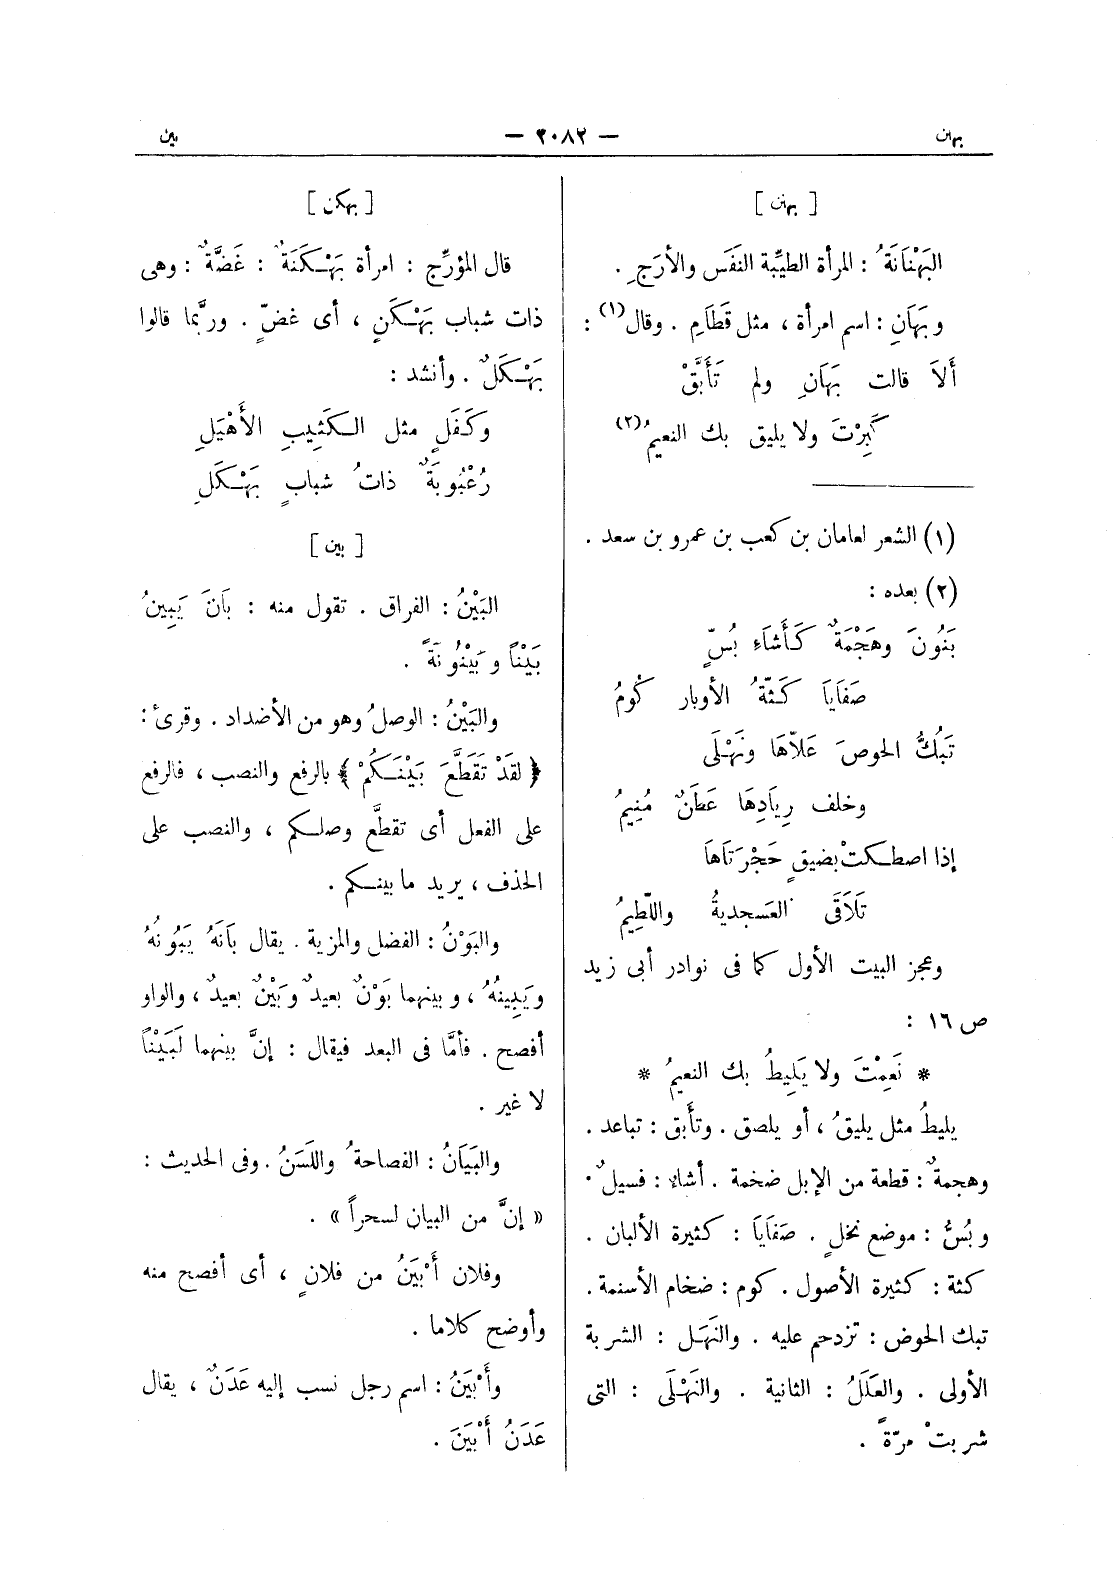 بهن
— ٢٠٨٢ —
بين
[ بهن ]
البَهْنَانَةُ : المرأة الطيِّبة النَفَس والأرَجِ .
وبَهَانِ : اسم امرأة ، مثل قَطَامِ . وقال(١) :
أَلاَ قالت بَهَانِ ولم تَأَبَّقْ
كَبِرْتَ ولا يليق بك النعيمُ(٢)
(١) الشعر لعامان بن كعب بن عمرو بن سعد .
(٢) بعده :
بَنُونَ وهَجْمَةٌ كَأَشَاءِ بُسٍّ
صَفَايَا كَثَّةُ الأوبار كُومُ
تَبُكُّ الحوضَ عَلاَّهَا ونَهْلَى
وخلف رِيَادِهَا عَطَنٌ مُنِيمُ
إذا اصطكتْ بضيقٍ حَجْرَتَاهَا
تَلاَقَى العَسجديةُ واللَطِيمُ
وعجز البيت الأول كما فى نوادر أبى زيد
ص ١٦ :
* نَعِمْتَ ولا يَلِيطُ بك النعيمُ *
يليطُ مثل يليقُ ، أو يلصق . وتأبق : تباعد .
وهجمةٌ : قطعة من الإبل ضخمة . أشاء : فسيلٌ .
وبُسُّ : موضع نخلٍ . صَفَايَا : كثيرة الألبان .
كثة : كثيرة الأصول . كوم : ضخام الأسنمة .
تبك الحوض : تزدحم عليه . والنَهَل : الشربة
الأولى . والعَلَلُ : الثانية . والنَهْلَى : التى
شربتْ مرّةً .
[ بهكن ]
قال المؤرِّج : امرأة بَهْكَنَةٌ : غَضَّةٌ : وهى
ذات شباب بَهْكَنٍ ، أى غضٍّ . وربَّما قالوا
بَهْكَلٌ . وأنشد :
وكَفَلٍ مثل الكَثِيبِ الأَهْيَلِ
رُعْبُوبَةٌ ذاتُ شبابٍ بَهْكَلِ
[ بين ]
البَيْنُ : الفراق . تقول منه : بَانَ يَبِينُ
بَيْناً وبَيْنُونَةً .
والبَيْنُ : الوصلُ وهو من الأضداد . وقرئ :
﴿ لقَدْ تَقَطَّعَ بَيْنَكُمْ ﴾ بالرفع والنصب ، فالرفع
على الفعل أى تقطَّع وصلكم ، والنصب على
الحذف ، يريد ما بينكم .
والبَوْنُ : الفضل والمزية . يقال بَانَهُ يَبُونُهُ
ويَبِينُهُ ، وبينهما بَوْنٌ بعيدٌ وبَيْنٌ بعيدٌ ، والواو
أفصح . فأمَّا فى البعد فيقال : إنَّ بينهما لَبَيْناً
لا غير .
والبَيَانُ : الفصاحةُ واللَسَنُ . وفى الحديث :
« إنَّ من البيان لسحراً » .
وفلان أَبْيَنُ من فلانٍ ، أى أفصح منه
وأوضح كلاما .
وأَبْيَنُ : اسم رجل نسب إليه عَدَنٌ ، يقال
عَدَنُ أَبْيَنَ .